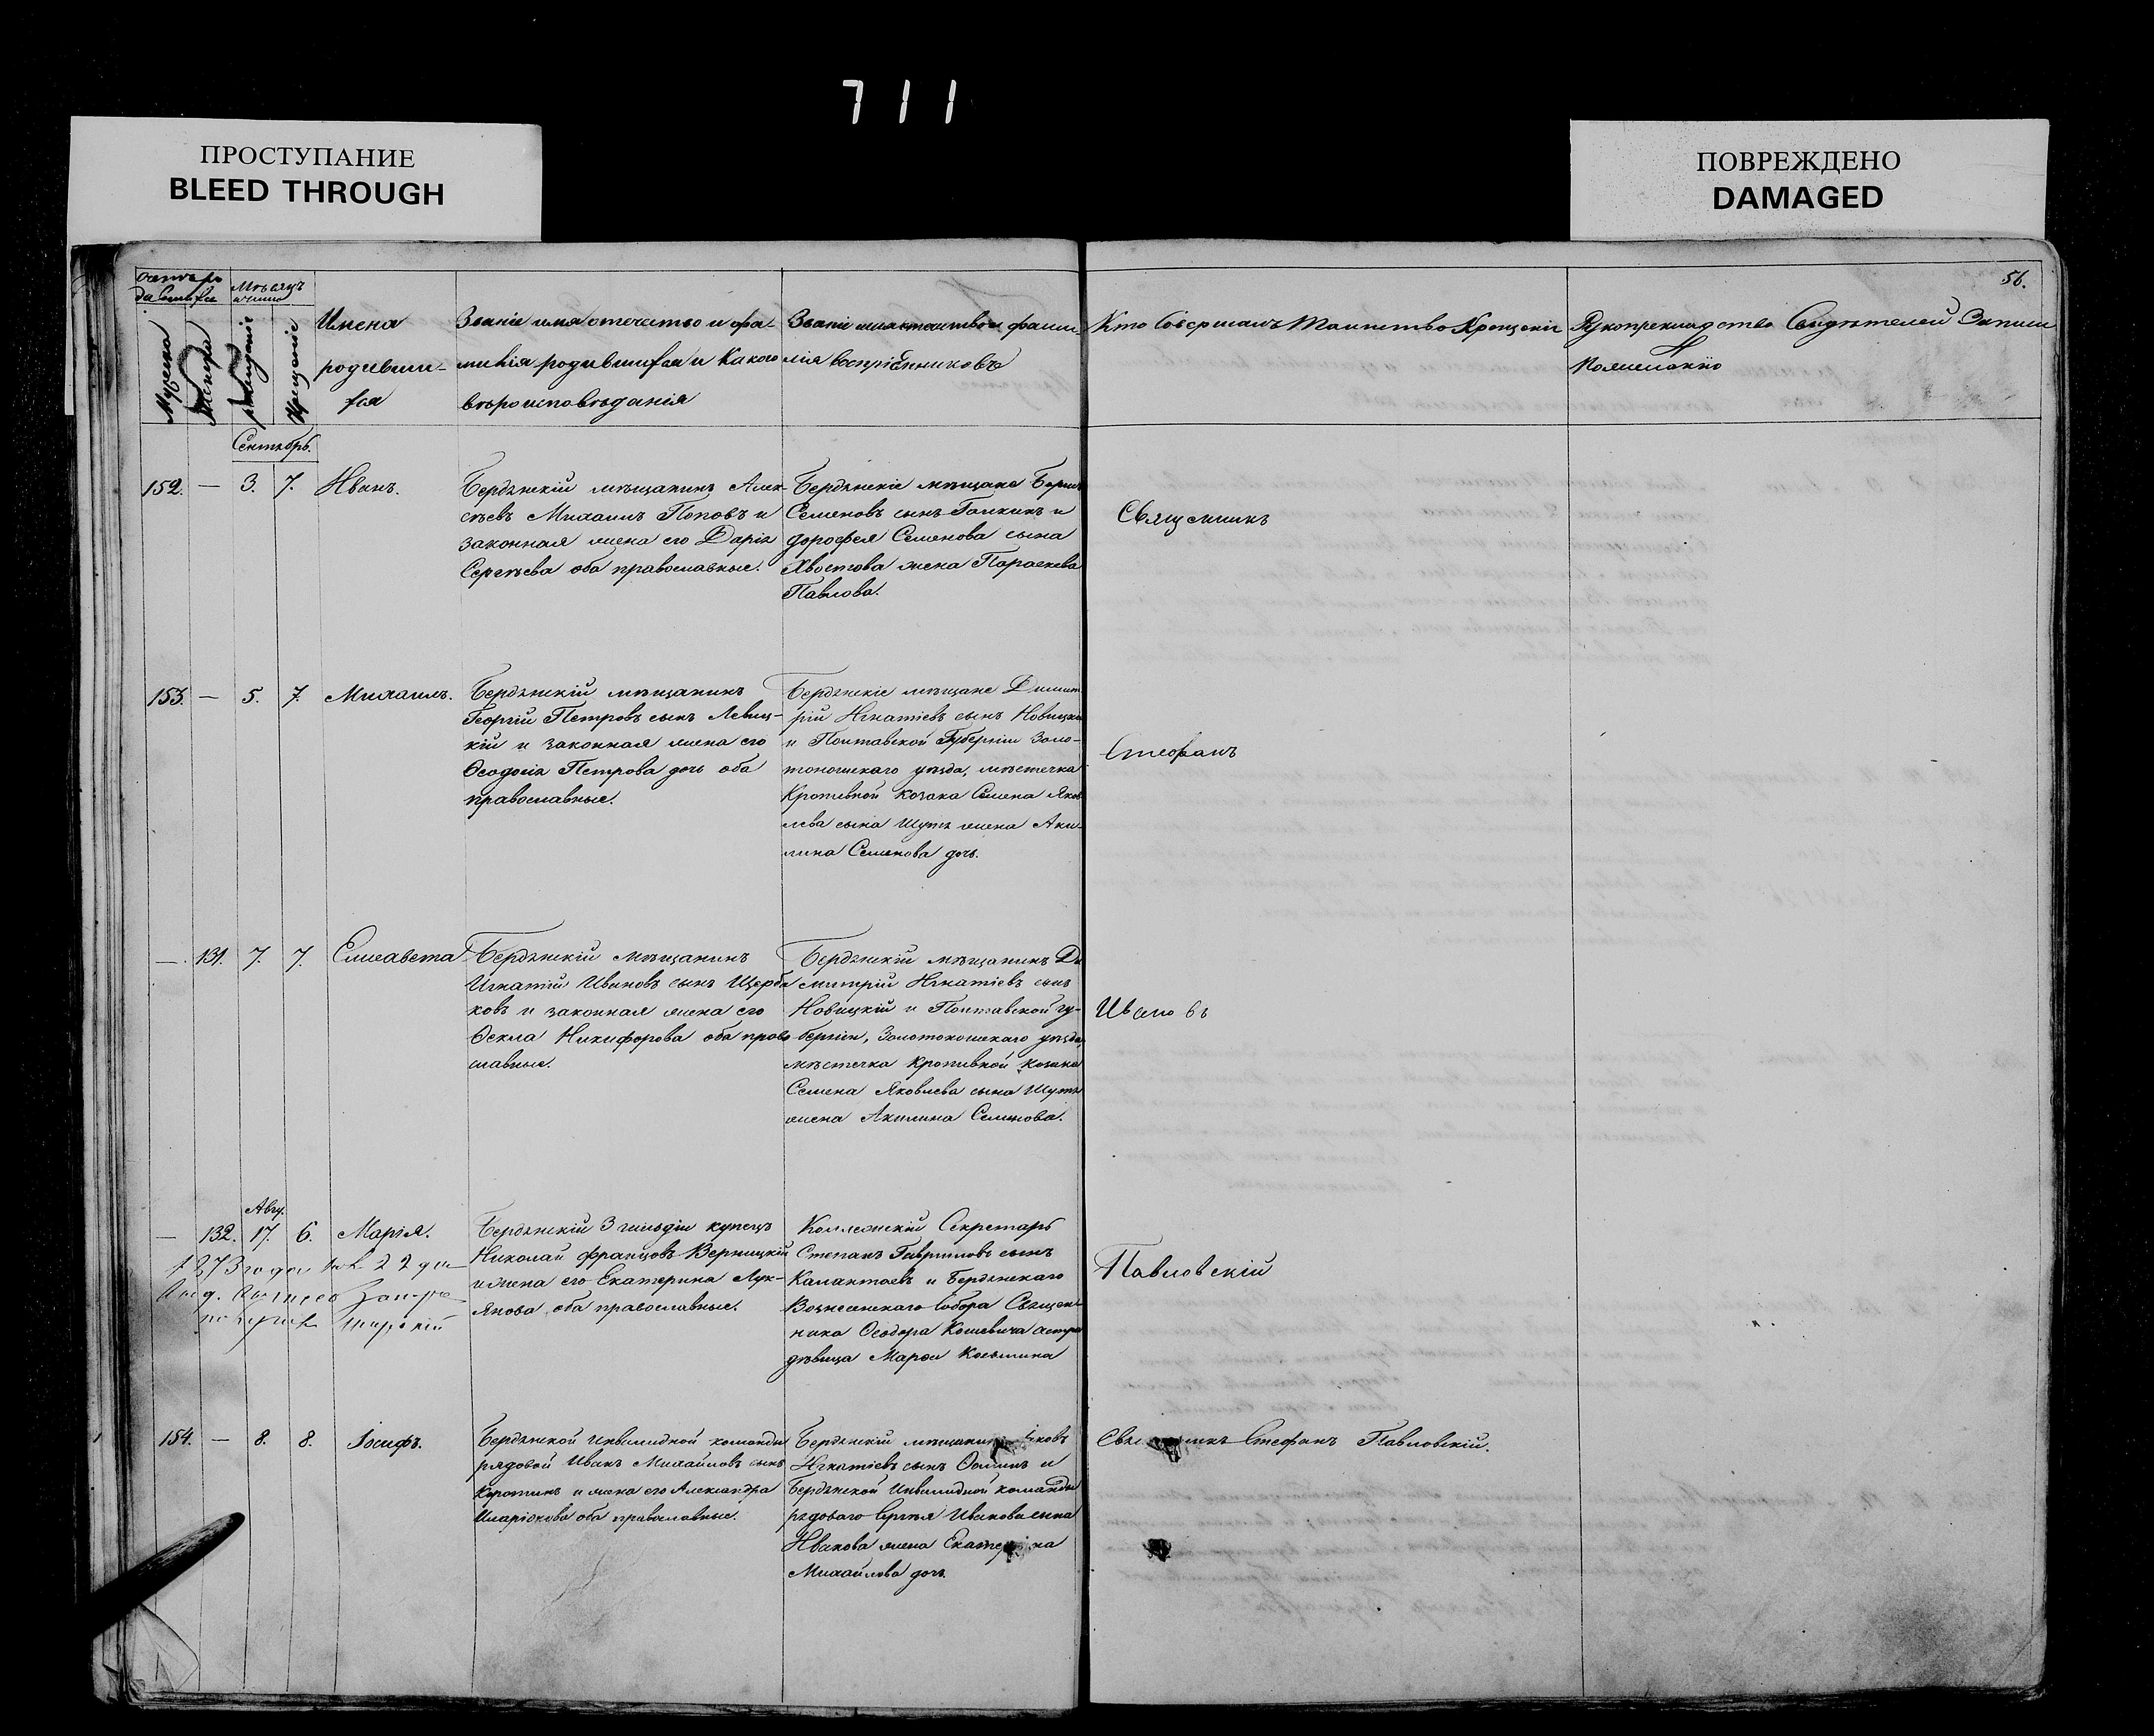 711
ПРОСТУПАНИЕ
BLEED THROUGH
ПОВРЕЖДЕНО
DAMAGED
56.
Мѣсяцъ
Мужеска
Женска
рожденіе
Крещеніе
Имена
родивши-
хся
Званіе имя отечество и фа-
милія родившихся и Какого
вѣроисповѣданія
Званіе имя отчество и фами
лія воспріемниковъ
Кто Совершалъ Таинство Крещенія
Рукоприкладство Свидѣтелей Записи
По желанію
Сентябрь.
152. — 3. 7. Иванъ.
Бердянскій мѣщанинъ Алек-
сѣевъ Михаилъ Поповъ и
законная жена его Дарія
Сергѣева оба православные.
Бердянскіе мѣщане
Семеновъ сынъ Галкинъ и
Дорофея Семенова сына
Хвостова жена Параскева
Павлова.
Священникъ
153. — 5. 7. Михаилъ.
Бердянскій мѣщанинъ
Георгій Петровъ сынъ Левиц-
кій и законная жена его
Ѳеодосія Петрова дочь оба
православные.
Бердянскіе мѣщане Димит
рій Игнатіевъ сынъ Новицкій
и Полтавской Губерніи Золо-
тоношскаго уѣзда, мѣстечка
Кропивной козака Семена Яков
лева сына Шутъ жена Аки-
лина Семенова дочь.
Стефанъ
— 131. 7. 7. Елисавета
Бердянскій мѣщанинъ
Игнатій Ивановъ сынъ Щерба
ковъ и законная жена его
Ѳекла Никифорова оба право
славные.
Бердянскій мѣщанинъ Ди
митрій Игнатіевъ сынъ
Новицкій и Полтавской гу-
берніи, Золотоношскаго уѣзда,
мѣстечка Кропивной козака
Семена Яковлева сына Шутъ
жена Акилина Семенова.
Ивановъ
Авгу.
— 132. 17. 6. Марія.
1873 года 22 дня
Бердянскій 3 гильдіи купецъ
Николай Францовъ Верницкій
и жена его Екатерина Лук-
янова оба православные.
Коллежскій Секретарь
Степанъ Гавриловъ сынъ
Калантаевъ и Бердянскаго
Вознесенскаго Собора Священ
ника Ѳеодора Кошевича сестра
дѣвица Марѳа Косьмина
Павловскій
154. — 8. 8. Іосифъ.
Бердянской Инвалидной команды
рядовой Иванъ Михайловъ сынъ
Коротинъ и жена его Александра
Иларіонова оба православные.
Бердянскій мѣщанинъ Яковъ
Игнатіевъ сынъ Ѳоминъ и
Бердянской Инвалидной команды
рядоваго Сергѣя Иванова сына
Иванова жена Екатерина
Михайлова дочь.
Священникъ Стефанъ Павловскій.